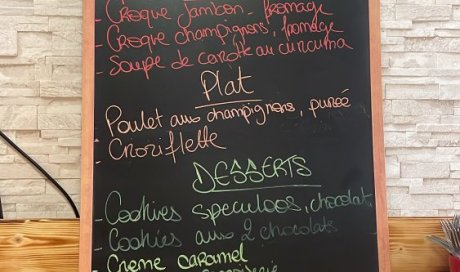 Croque Jambon - fromage
Croque champignons, fromage
Soupe de carotte au curcuma
Plat
Poulet aux champignons, purée
Croziflette
DESSERTS
Cookies speculoos, chocolat,
Cookies aux 2 chocolats
Crème caramel